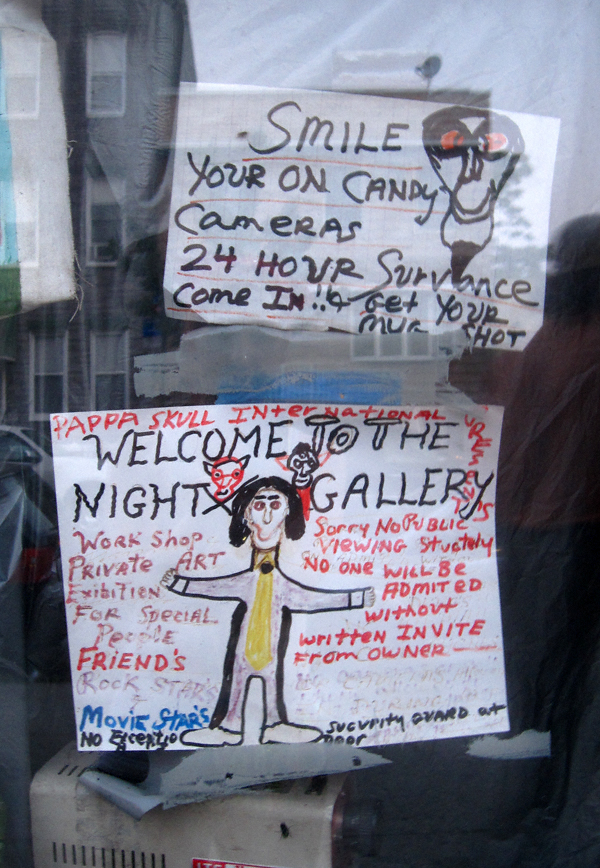 SMILE
YOUR ON CANDY
CAMERAS
24 HOUR SURVANCE
COME IN !! & GET YOUR
MUG SHOT
PAPPA SKULL INTERNATIONAL
PRESENT'S
WELCOME TO THE
NIGHT GALLERY
WORK SHOP
PRIVATE ART
EXIBITION
FOR SPECIAL
PEOPLE
FRIEND'S
ROCK STAR'S
MOVIE STAR'S
NO EXCEPTIO
SORRY NO PUBLIC
VIEWING STUATELY
NO ONE WILL BE
ADMITED
WITHOUT
WRITTEN INVITE
FROM OWNER
SUCURITY GUARD AT
DOOR